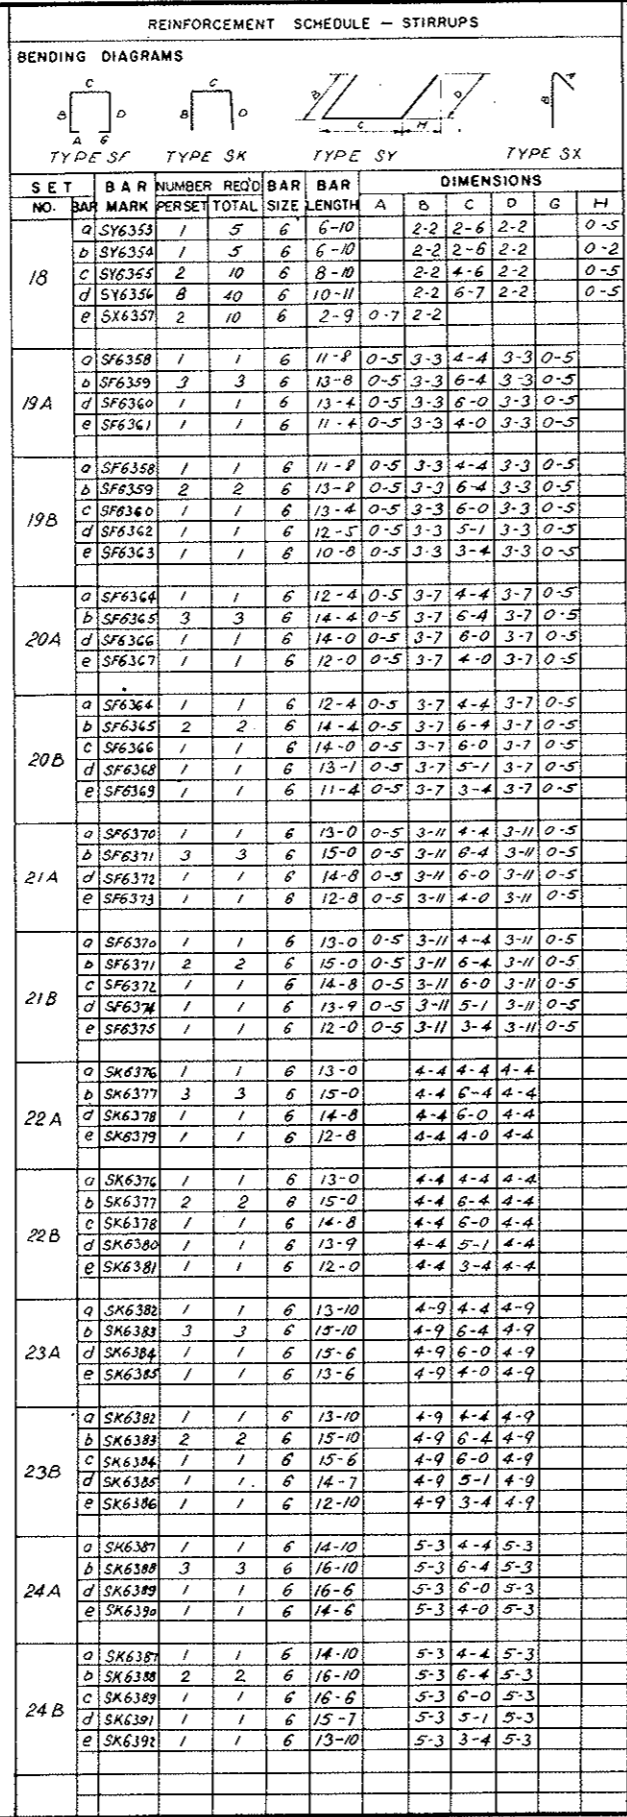 REINFORCEMENT SCHEDULE — STIRRUPS
BENDING DIAGRAMS
C C
B D B D B D B A
A G C H
TYPE SF TYPE SK TYPE SY TYPE SX
SET BAR NUMBER REQ'D BAR BAR DIMENSIONS
NO. BAR MARK PER SET TOTAL SIZE LENGTH A B C D G H
18
a SY6353 1 5 6 6-10 2-2 2-6 2-2 0-5
b SY6354 1 5 6 6-10 2-2 2-6 2-2 0-2
c SY6355 2 10 6 8-10 2-2 4-6 2-2 0-5
d SY6356 8 40 6 10-11 2-2 6-7 2-2 0-5
e SX6357 2 10 6 2-9 0-7 2-2
19A
a SF6358 1 1 6 11-8 0-5 3-3 4-4 3-3 0-5
b SF6359 3 3 6 13-8 0-5 3-3 6-4 3-3 0-5
d SF6360 1 1 6 13-4 0-5 3-3 6-0 3-3 0-5
e SF6361 1 1 6 11-4 0-5 3-3 4-0 3-3 0-5
19B
a SF6358 1 1 6 11-8 0-5 3-3 4-4 3-3 0-5
b SF6359 2 2 6 13-8 0-5 3-3 6-4 3-3 0-5
c SF6360 1 1 6 13-4 0-5 3-3 6-0 3-3 0-5
d SF6362 1 1 6 12-5 0-5 3-3 5-1 3-3 0-5
e SF6363 1 1 6 10-8 0-5 3-3 3-4 3-3 0-5
20A
a SF6364 1 1 6 12-4 0-5 3-7 4-4 3-7 0-5
b SF6365 3 3 6 14-4 0-5 3-7 6-4 3-7 0-5
d SF6366 1 1 6 14-0 0-5 3-7 6-0 3-7 0-5
e SF6367 1 1 6 12-0 0-5 3-7 4-0 3-7 0-5
20B
a SF6364 1 1 6 12-4 0-5 3-7 4-4 3-7 0-5
b SF6365 2 2 6 14-4 0-5 3-7 6-4 3-7 0-5
c SF6366 1 1 6 14-0 0-5 3-7 6-0 3-7 0-5
d SF6368 1 1 6 13-1 0-5 3-7 5-1 3-7 0-5
e SF6369 1 1 6 11-4 0-5 3-7 3-4 3-7 0-5
21A
a SF6370 1 1 6 13-0 0-5 3-11 4-4 3-11 0-5
b SF6371 3 3 6 15-0 0-5 3-11 6-4 3-11 0-5
d SF6372 1 1 6 14-8 0-5 3-11 6-0 3-11 0-5
e SF6373 1 1 6 12-8 0-5 3-11 4-0 3-11 0-5
21B
a SF6370 1 1 6 13-0 0-5 3-11 4-4 3-11 0-5
b SF6371 2 2 6 15-0 0-5 3-11 6-4 3-11 0-5
c SF6372 1 1 6 14-8 0-5 3-11 6-0 3-11 0-5
d SF6374 1 1 6 13-9 0-5 3-11 5-1 3-11 0-5
e SF6375 1 1 6 12-0 0-5 3-11 3-4 3-11 0-5
22A
a SK6376 1 1 6 13-0 4-4 4-4 4-4
b SK6377 3 3 6 15-0 4-4 6-4 4-4
d SK6378 1 1 6 14-8 4-4 6-0 4-4
e SK6379 1 1 6 12-8 4-4 4-0 4-4
22B
a SK6376 1 1 6 13-0 4-4 4-4 4-4
b SK6377 2 2 6 15-0 4-4 6-4 4-4
c SK6378 1 1 6 14-8 4-4 6-0 4-4
d SK6380 1 1 6 13-9 4-4 5-1 4-4
e SK6381 1 1 6 12-0 4-4 3-4 4-4
23A
a SK6382 1 1 6 13-10 4-9 4-4 4-9
b SK6383 3 3 6 15-10 4-9 6-4 4-9
d SK6384 1 1 6 15-6 4-9 6-0 4-9
e SK6385 1 1 6 13-6 4-9 4-0 4-9
23B
a SK6382 1 1 6 13-10 4-9 4-4 4-9
b SK6383 2 2 6 15-10 4-9 6-4 4-9
c SK6384 1 1 6 15-6 4-9 6-0 4-9
d SK6385 1 1 6 14-7 4-9 5-1 4-9
e SK6386 1 1 6 12-10 4-9 3-4 4-9
24A
a SK6387 1 1 6 14-10 5-3 4-4 5-3
b SK6388 3 3 6 16-10 5-3 6-4 5-3
d SK6389 1 1 6 16-6 5-3 6-0 5-3
e SK6390 1 1 6 14-6 5-3 4-0 5-3
24B
a SK6387 1 1 6 14-10 5-3 4-4 5-3
b SK6388 2 2 6 16-10 5-3 6-4 5-3
c SK6389 1 1 6 16-6 5-3 6-0 5-3
d SK6391 1 1 6 15-7 5-3 5-1 5-3
e SK6392 1 1 6 13-10 5-3 3-4 5-3